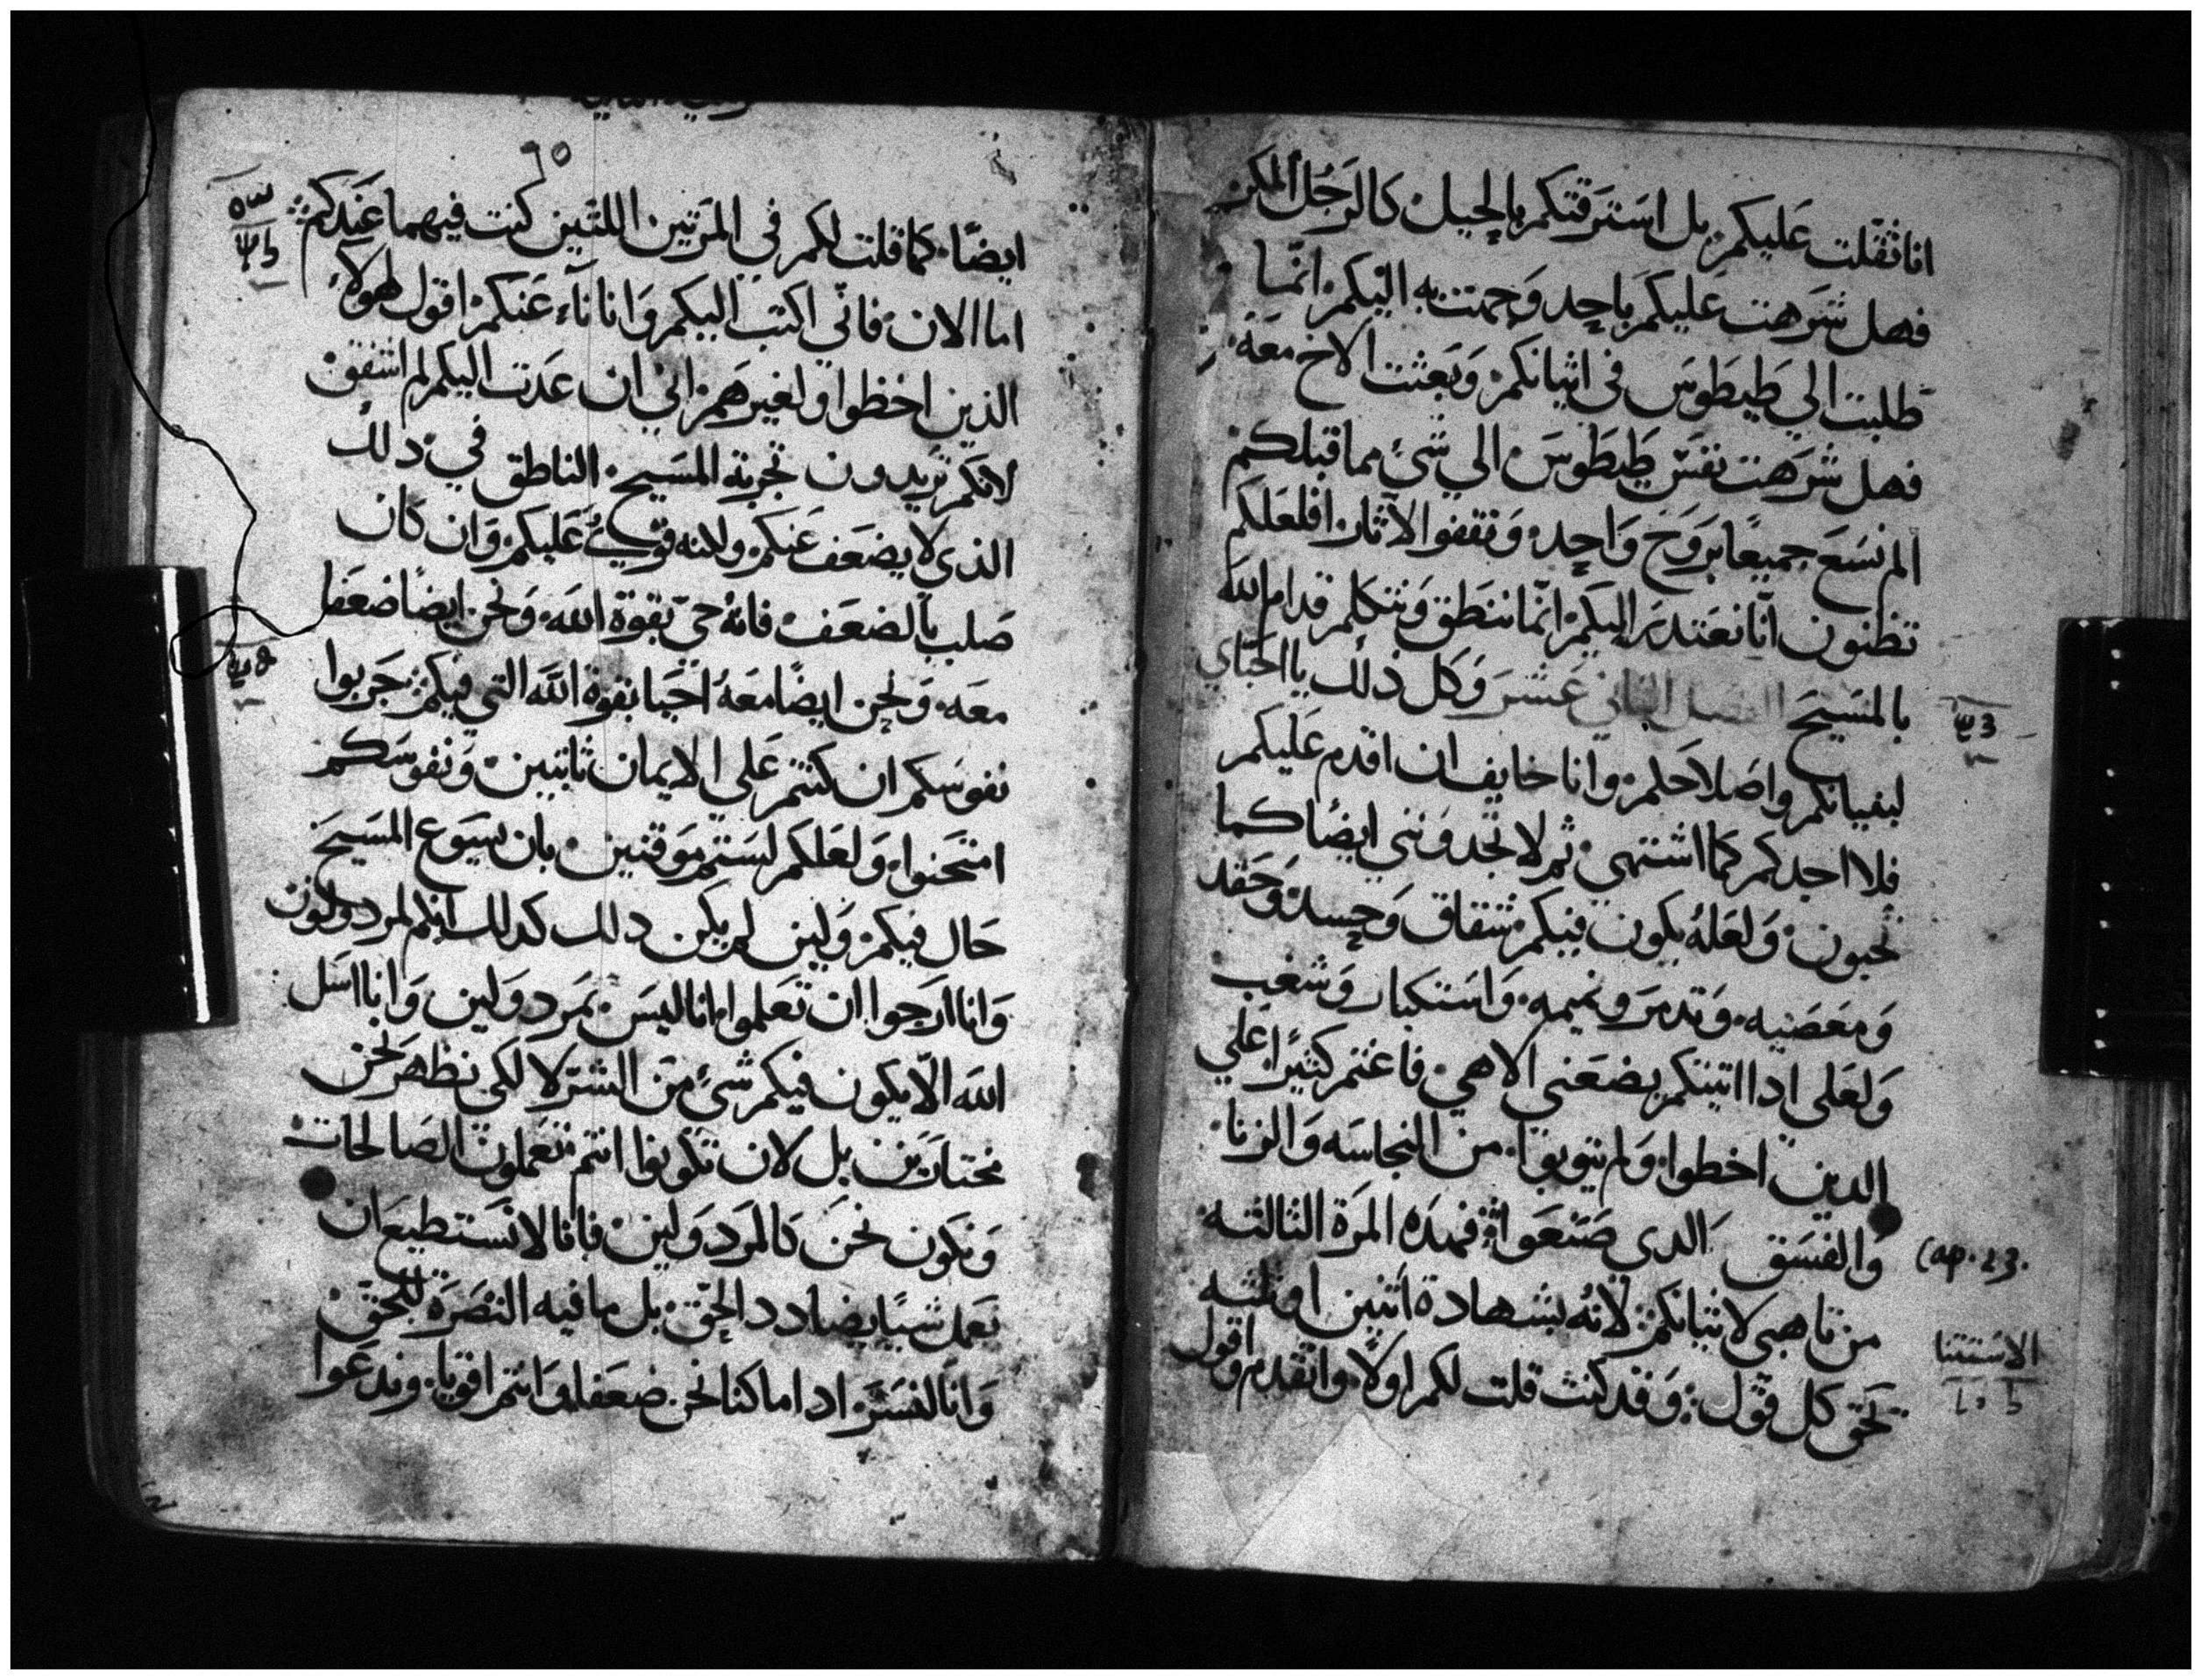 انا ثقلت عليكم بل استرقتكم بالحيل كالرجل المكر
فهل شرهت عليكم باحد وجهت به اليكم انما
طلبت الي طيطوس في اتيانكم وبعثت الاخ معه
فهل شرهت نفس طيطوس الي شئ مما قبلكم
الم نسع جميعا بروح واحده ونقفوا الاثار افلعلكم
تظنون انا نعتدر اليكم انما ننطق ونتكلم قدام الله
بالمسيح الفصل الثاني عشر وكل ذلك يا احباي
لبنيانكم واصلاحكم وانا خايف ان اقدم عليكم
فلا اجدكم كما اشتهي ثم لا تجدونني ايضا كما
تحبون ولعله يكون فيكم شقاق وحسد وحقد
ومعصيه وتدمر ونميمه واستكبار وشغب
ولعلي ادا اتيتكم يضعني الاهي فاغتم كثيرا علي
الدين اخطوا ولم يتوبوا من النجاسه والزنا
والفسق الدي صنعوا فهده المره الثالثه
Cap. 13.
من تاهبي لاتيانكم لانه بشهادة اثنين او ثلثه
الاستثنا
تحق كل قول وقد كنت قلت لكم اولا واتقدم واقول
ايضا كما قلت لكم في المرتين اللتين كنت فيهما عندكم
اما الان فاني اكتب اليكم وانا ناء عنكم اقول لهولاء
الذين اخطوا ولغيرهم اني ان عدت اليكم لم اشفق
لانكم تريدون تجربة المسيح الناطق في دلك
الذي لا يضعف عنكم ولكنه قوي عليكم وان كان
صلب بالضعف فانه حي بقوة الله ونحن ايضا ضعفا
معه ونحن ايضا معه احيا بقوة الله التي فيكم جربوا
نفوسكم ان كنتم علي الايمان ثابتين ونفوسكم
امتحنوا ولعلكم لستم موقنين بان يسوع المسيح
حال فيكم ولين لم يكن دلك كدلك انكم لمردولون
وانا ارجوا ان تعلموا انا ليس بمردولين وانا اسل
الله الا يكون فيكم شئ من الشر لا لكي نظهر نحن
مختارين بل لان تكونوا انتم تعملون الصالحات
ونكون نحن كالمردولين فانا لا نستطيع ان
نعمل شيا يضادد الحق بل ما فيه النصره للحق
وانا لنسر ادا ما كنا نحن ضعفا وانتم اقويا وندعوا